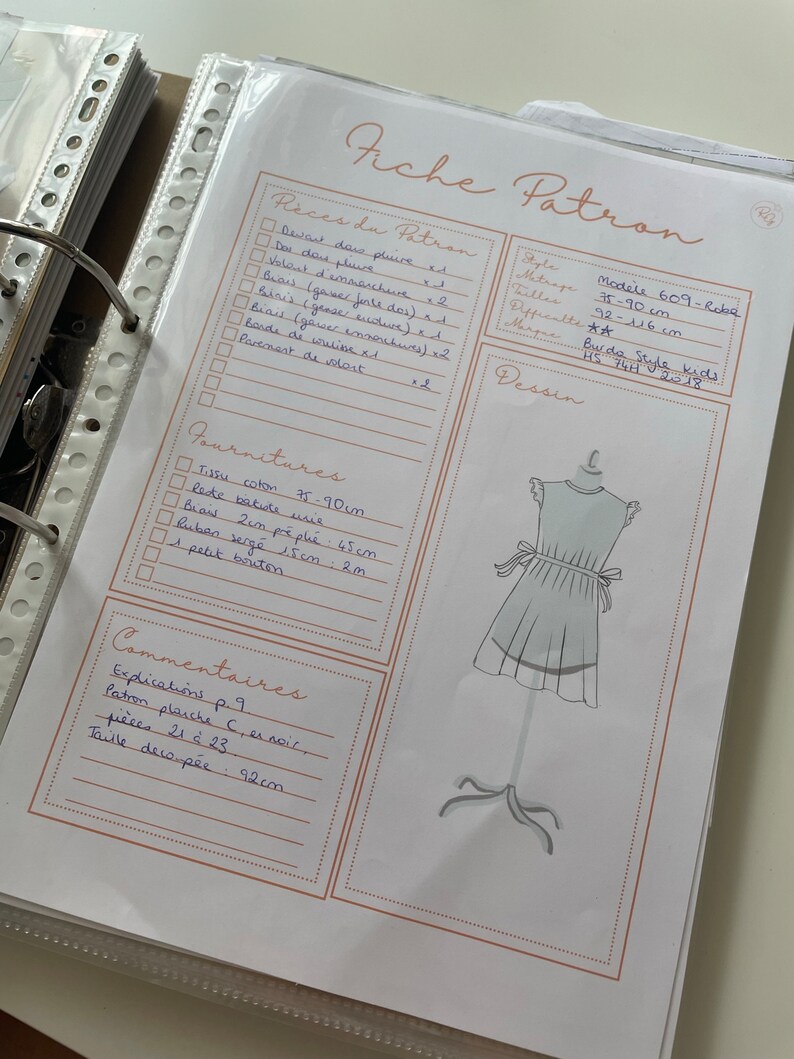 Fiche Patron
Pièces du Patron
Devant dans pliure x1
Dos dans pliure x1
Volant d'emmanchure x2
Biais (ganser fente dos) x1
Biais (ganser encolure) x1
Biais (ganser emmanchures) x2
Bande de coulisse x1
Parement de volant x2
Fournitures
Tissu coton 75-90cm
Reste batiste unie
Biais 2cm préplié : 45cm
Ruban sergé 1,5cm : 2m
1 petit bouton
Commentaires
Explications p.9
Patron planche C, en noir,
pièces 21 à 23
Taille découpée : 92cm
Style Modèle 609-Robe
Métrage 75-90 cm
Tailles 92-116 cm
Difficulté **
Marque Burda Style Kids
HS 74H 2018
Dessin